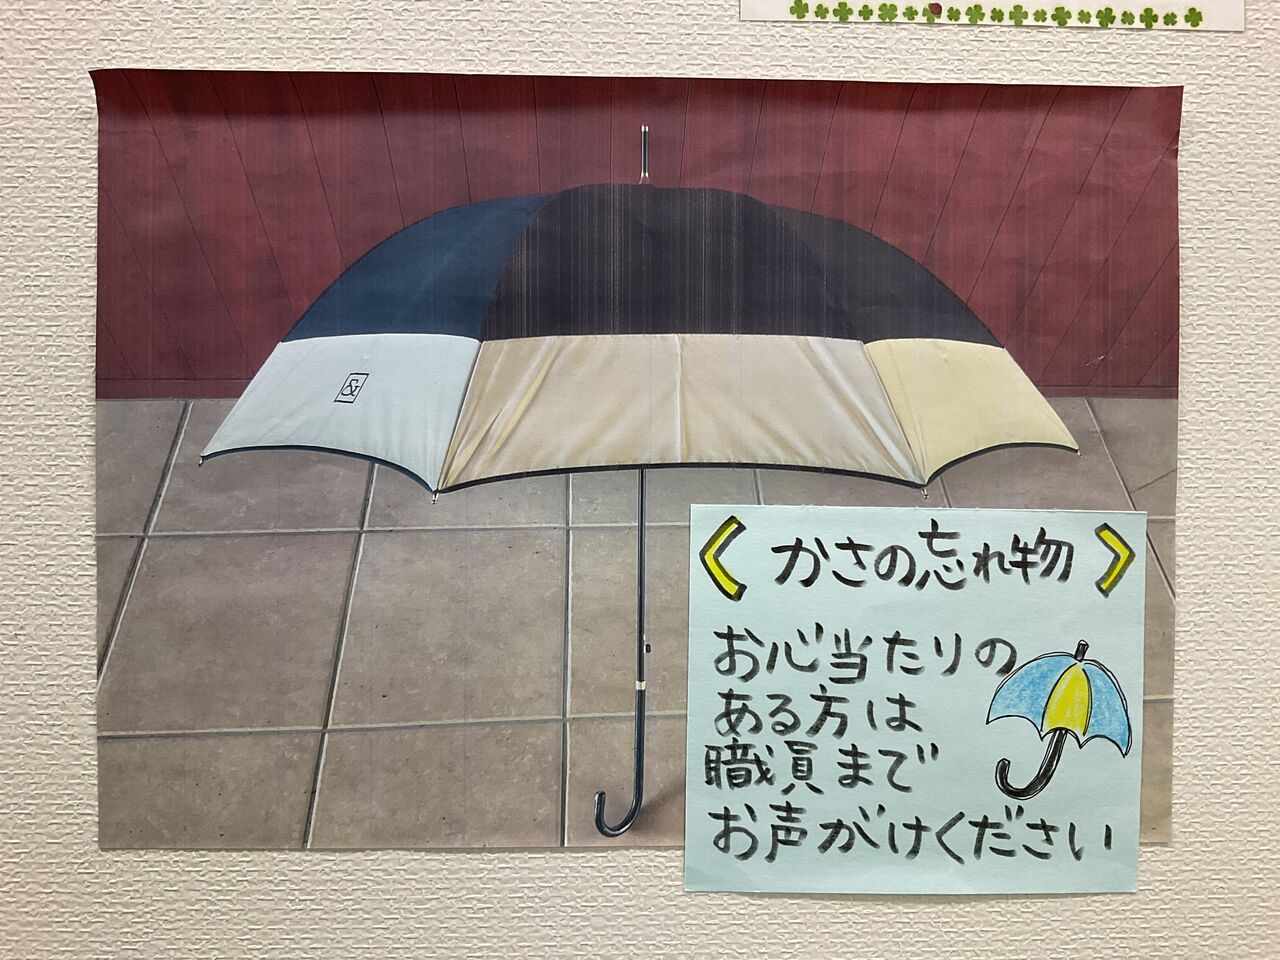 &
〈 かさの忘れ物 〉
お心当たりの
ある方は
職員まで
お声がけください